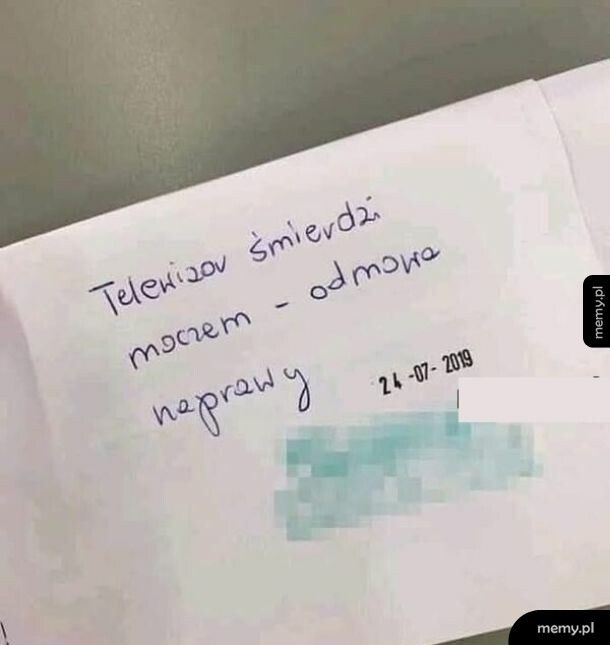 memy.pl
Telewizor śmierdzi
moczem - odmowa
naprawy
24-07-2019
memy.pl